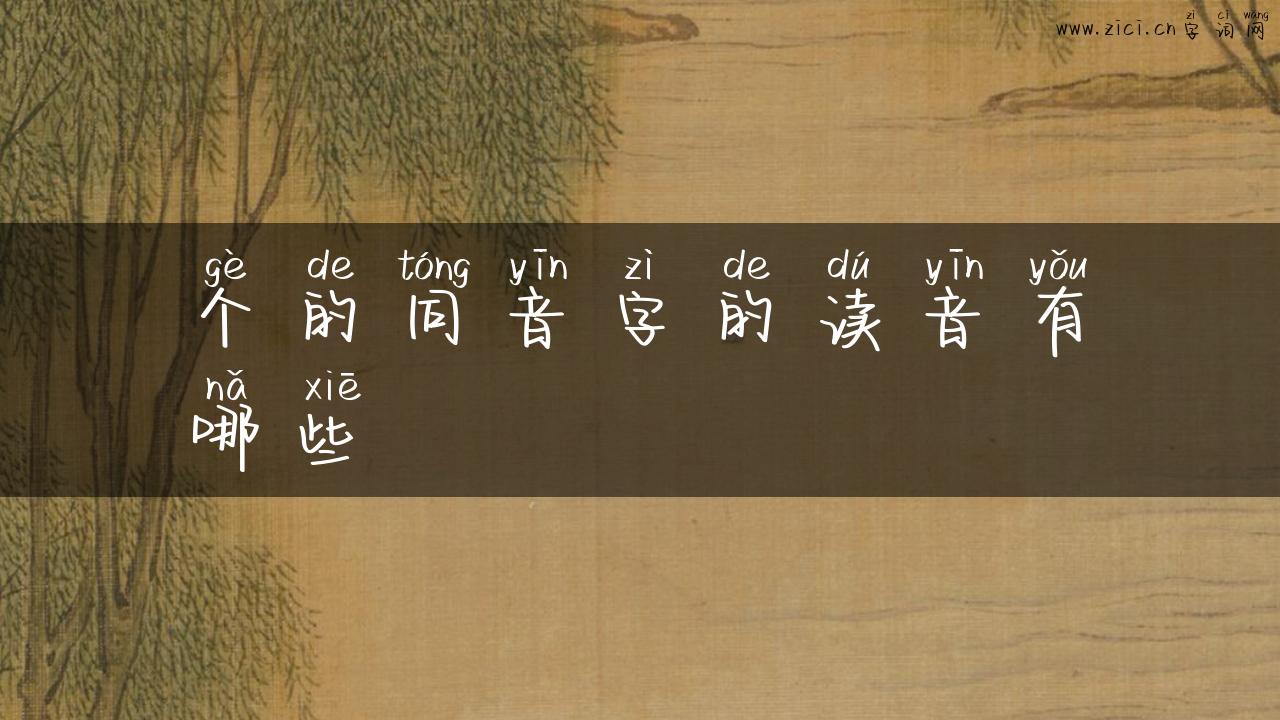 zì cí wǎng
www.zici.cn 字 词 网
gè de tóng yīn zì de dú yīn yǒu
个 的 同 音 字 的 读 音 有
nǎ xiē
哪 些